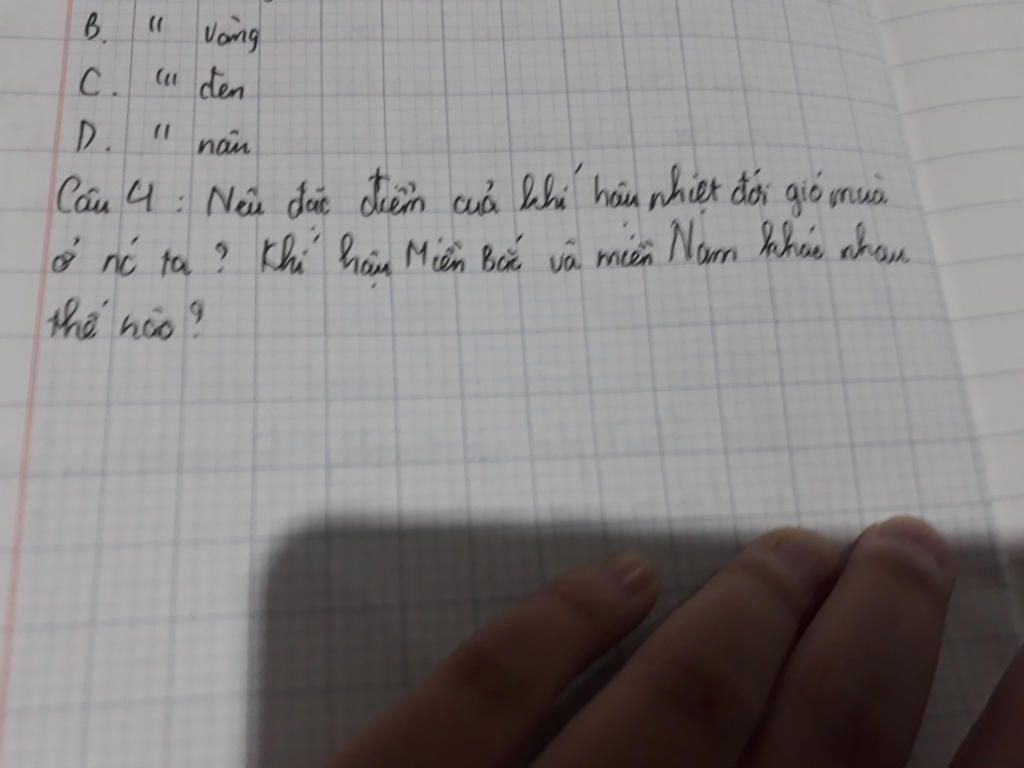 B. " vàng
C. " đen
D. " nâu
Câu 4 : Nêu đặc điểm của khí hậu nhiệt đới gió mùa
ở nc ta ? Khí hậu Miền Bắc và miền Nam khác nhau
thế nào ?